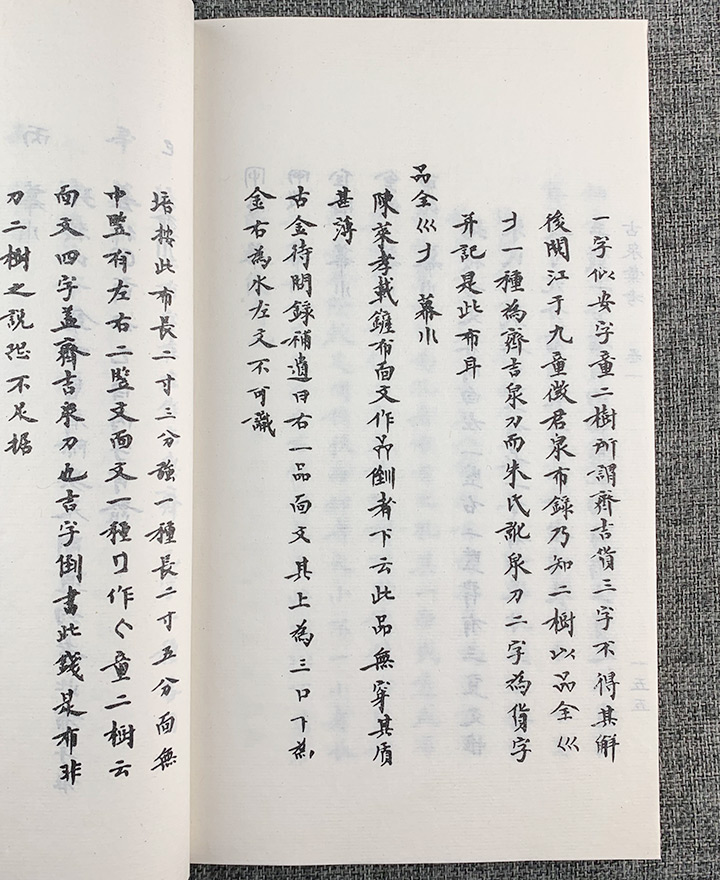 一字似安字童二樹所謂齊吉貨三字不得其解
後閱江于九童徵君泉布錄乃知二樹以品全巛
𠂇一種為齊吉泉刀而朱氏訛泉刀二字為貨字
并記是此布耳
品全巛𠂇 幕小
陳萊孝載鏟布面文作品倒者下云此品無穿其質
甚薄
古金待問錄補遺曰右一品面文其上為三口下為
金右為水左文不可識
培按此布長二寸三分強一種長二寸五分面無
中豎有左右二豎文面文一種卩作く童二樹云
面文四字蓋齊吉泉刀也吉字倒書此錢是布非
刀二樹之說恐不足據